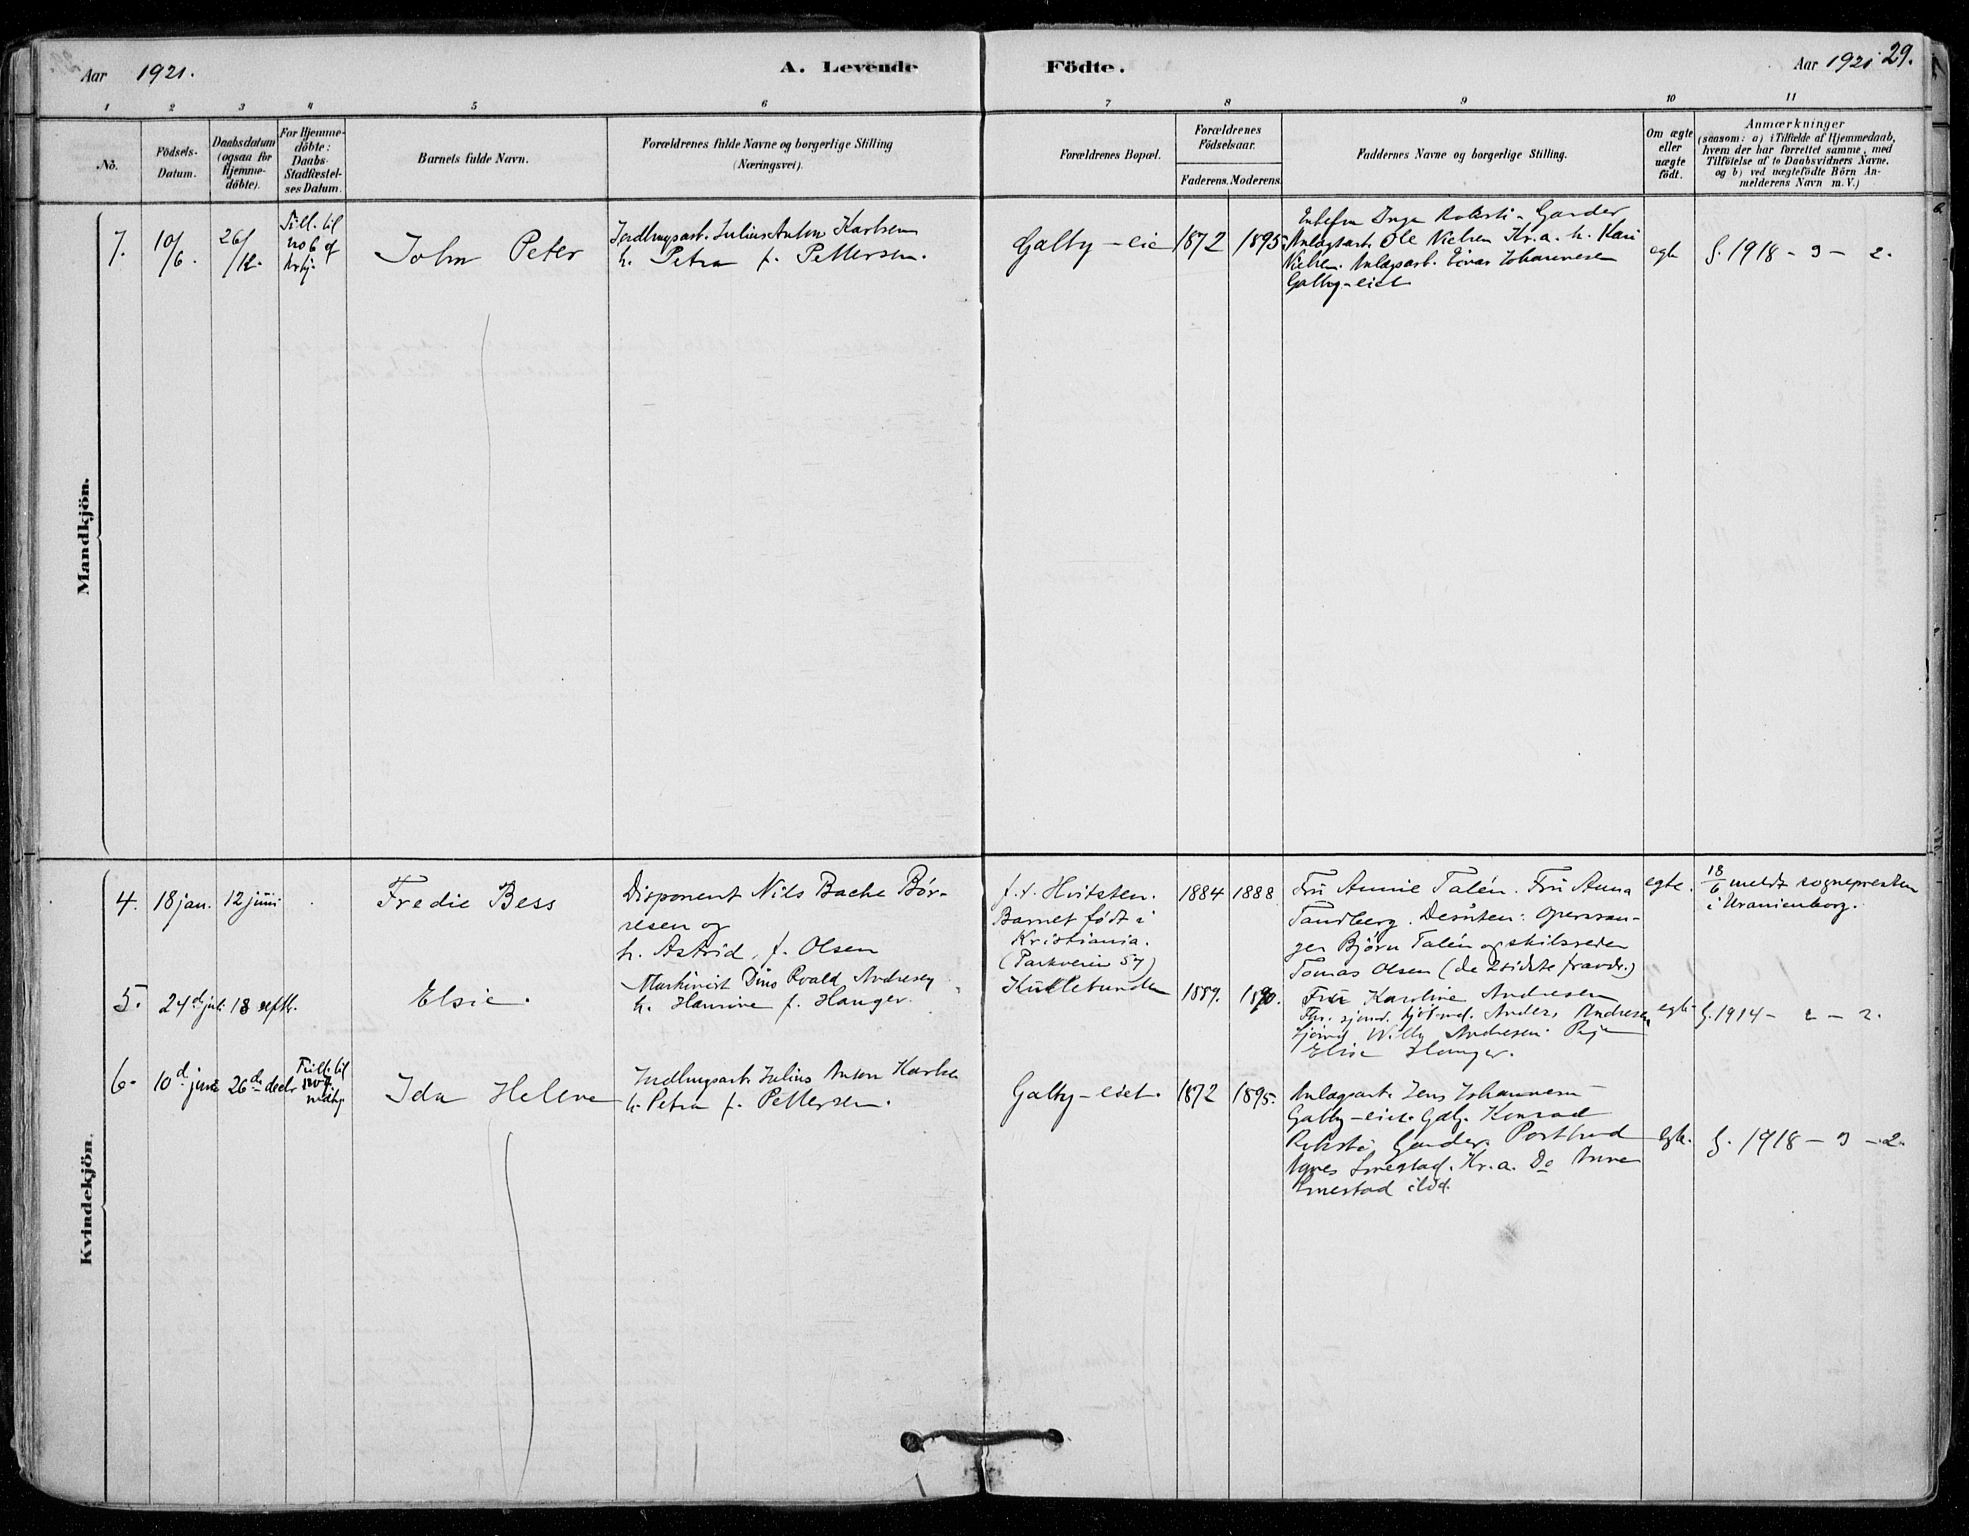 Aar 1921.
A. Levende Födte.
Aar 1921
29.
1 2 3 4 5 6 7 8 9 10 11
No.
Födsels-
Datum.
Daabsdatum
(ogsaa for
Hjemme-
döbte).
For Hjemme-
döbte:
Daabs-
Stadfæstel-
ses Datum.
Barnets fulde Navn.
Forældrenes fulde Navne og borgerlige Stilling
(Næringsvei).
Forældrenes Bopæl.
Forældrenes
Födselsaar.
Faderens. Moderens.
Faddernes Navne og borgerlige Stilling.
Om ægte
eller
uægte
födt.
Anmærkninger
(saasom: a) i Tilfælde af Hjemmedaab,
hvem der har forrettet samme, med
Tilföielse af to Daabsvidners Navne,
og b) ved uægtefödte Börn An-
melderens Navn m. V.)
Mandkjön.
7.
10/6.
26/12.
Tvill. til
no 6 af
kvkj.
John Peter
Julius Anton Karlsen
h. Petra f. Pettersen.
Galby-eie
1872
1895.
Inga Gander
Ole Nielsen Kr.a. h. Kari
Nielsen. Anlægsarb. Einar Johannesen
Galby-eiet
egte
g. 1918 - 3 - 2.
Kvindekjön.
4.
18 jan.
12 juni
Fredie Bess
Disponent Nils Bache Bór-
resen og
h. Astrid, f. Olsen
f. t. Hvitsten.
Barnet födt i
Kristiania.
(Parkveien 57)
1884
1888
Frü Annie Talén. Frü Anna
Sandberg. Desüten: Operasan-
ger Björn Talén og skibsreder
Tomas Olsen (de 2 sidste fravær.)
egte.
18/6 meldt sognepresten
i Uranienborg.
5.
24d juli
18 septbr.
Elsie.
Maskinist Andresen
h. Hanine f. Hauger.
1889.
1890.
Frü Karoline Andresen
Anders Andresen
Willy Andresen. Pige
Elise Hauger.
egte
g. 1914 - 2 - 2.
6.
10d juni
26de decbr
Tvill. til
no 7
mdkj.
Ida Helene
Julius Anton Karlsen
h. Petra f. Pettersen.
Galby-eiet.
1872
1895.
Anlægsarb. Jens Johannesen
Galby-eiet. Konrad
Gander. Postbud
Agnes Kr.a. Do Anne
ibid.
egte.
g. 1918 - 3 - 2.